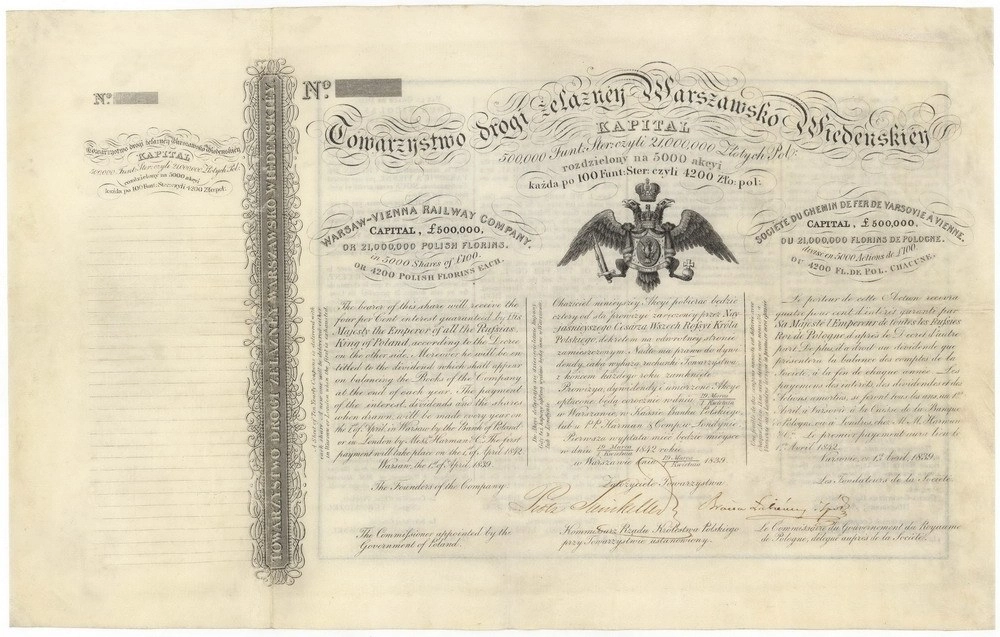 Nº
Towarzystwo drogi żelazney Warszawsko Wiedeńskiey
KAPITAL
500,000 Funt: Ster: czyli 21000,000 Złotych Pol:
rozdzielony na 5000 akcyi
każda po 100 Funt: Ster: czyli 4200 Złо: pol:
TOWARZYSTWO DROGI ŻELAZNEY WARSZAWSKO WIEDEŃSKIEY
Nº
Towarzystwo drogi żelazney Warszawsko Wiedeńskiey
KAPITAL
500,000 Funt: Ster: czyli 21000,000 Złotych Pol:
rozdzielony na 5000 akcyi
każda po 100 Funt: Ster: czyli 4200 Zło: pol:
WARSAW-VIENNA RAILWAY COMPANY.
CAPITAL, £500,000,
OR 21,000,000 POLISH FLORINS.
in 5000 Shares of £100.
OR 4200 POLISH FLORINS EACH.
The bearer of this share will receive the
four per Cent interest guaranteed by His
Majesty the Emperor of all the Russias
King of Poland, according to the Decree
on the other side. Moreover he will be en-
titled to the dividend which shall appear
on balancing the Books of the Company
at the end of each year. The payment
of the interest, dividends and the shares
when drawn, will be made every year on
the 1st of April in Warsaw by the Bank of Poland
or in London by Messrs Harman & Co. The first
payment will take place on the 1st of April 1842.
Warsaw, the 1st of April 1839.
The Founders of the Company
The Commissioner appointed by the
Government of Poland.
Okaziciel ninieyszey Akcyi pobierać będzie
cztery od sta prowizye zaręczoną przez Nay-
jaśnieyszego Cesarza Wszech Rossyi Króla
Polskiego, dekretem na odwrotney stronie
zamieszczonym. Nadto ma prawo do dywi-
dendy, jaką wykażą rachunki Towarzystwa
z końcem każdego roku zamknięte.
Prowizye, dywidendy i umorzone Akcye
opłacone będą corocznie w dniu 20 Marca / 1 Kwietnia
w Warszawie w Kassie Banku Polskiego
lub u P.P. Harman & Comp. w Londynie.
Pierwsza wypłata mieć będzie miejsce
w dniu 20 Marca / 1 Kwietnia 1842 roku
w Warszawie dnia 20 Marca / 1 Kwietnia 1839.
Założyciele Towarzystwa
Piotr Steinkeller
Kommissarz Rządu Królestwa Polskiego
przy Towarzystwie ustanowiony.
SOCIÉTÉ DU CHEMIN DE FER DE VARSOVIE A VIENNE.
CAPITAL, £500,000.
OU 21,000,000 FLORINS DE POLOGNE.
divisé en 5000 Actions de £100.
OU 4200 FL. DE POL. CHACUNE.
Le porteur de cette Action recevra
quatre pour cent d'intérêt garanti par
Sa Majesté l'Empereur de toutes les Russies
Roi de Pologne, d'après le Décret d'autre
part. De plus, il a droit au dividende que
présentera la balance des comptes de la
Société, à la fin de chaque année. Les
payemens des intérêts, des dividendes et des
Actions amorties, se feront tous les ans au 1er
Avril à Varsovie à la Caisse de la Banque
de Pologne, ou à Londres, chez M.M. Harman
& Co. Le premier payement aura lieu le
1er Avril 1842.
Varsovie, ce 1er Avril, 1839.
Les Fondateurs de la Société.
Le Commissaire du Gouvernement du Royaume
de Pologne, délégué auprès de la Société.